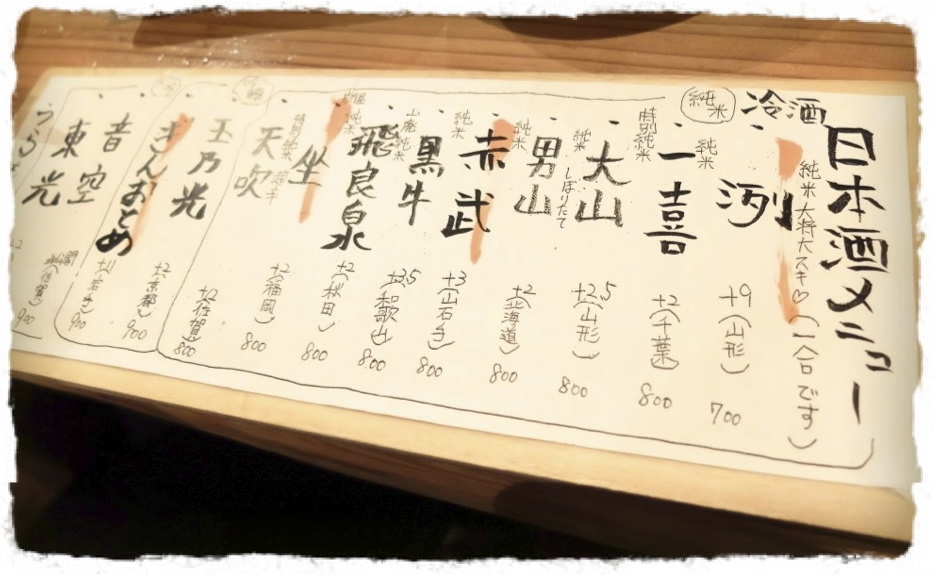 日本酒メニュー
冷酒
純米
純米大将大スキ♡(一合です)
洌 +9(山形) 700
純米 一喜 +2(千葉) 800
特別純米 大山 +2.5(山形) 800
純米 しぼりたて 男山 +2(北海道) 800
純米 赤武 +3(岩手) 800
純米 黒牛 +3.5(和歌山) 800
山廃純米 飛良泉 +2(秋田) 800
純米 坐 +2(福岡) 800
特別純米 天吹 +12(佐賀) 800
玉乃光 +2(京都) 900
ぎんおとめ (岩手) 900
音
東空
光 (佐賀) 900